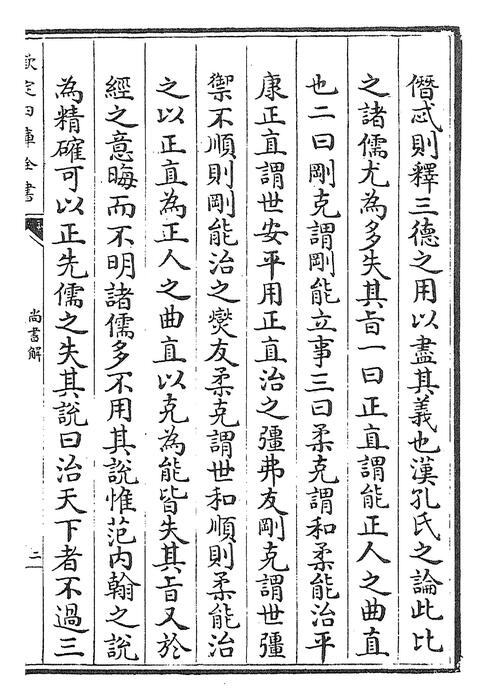 僭忒則釋三德之用以盡其義也漢孔氏之論此比
之諸儒尤為多失其旨一曰正直謂能正人之曲直
也二曰剛克謂剛能立事三曰柔克謂和柔能治平
康正直謂世安平用正直治之彊弗友剛克謂世彊
禦不順則剛能治之燮友柔克謂世和順則柔能治
之以正直為正人之曲直以克為能皆失其旨又於
經之意晦而不明諸儒多不用其說惟范内翰之說
為精確可以正先儒之失其說曰治天下者不過三
欽定四庫全書
尚書解
二